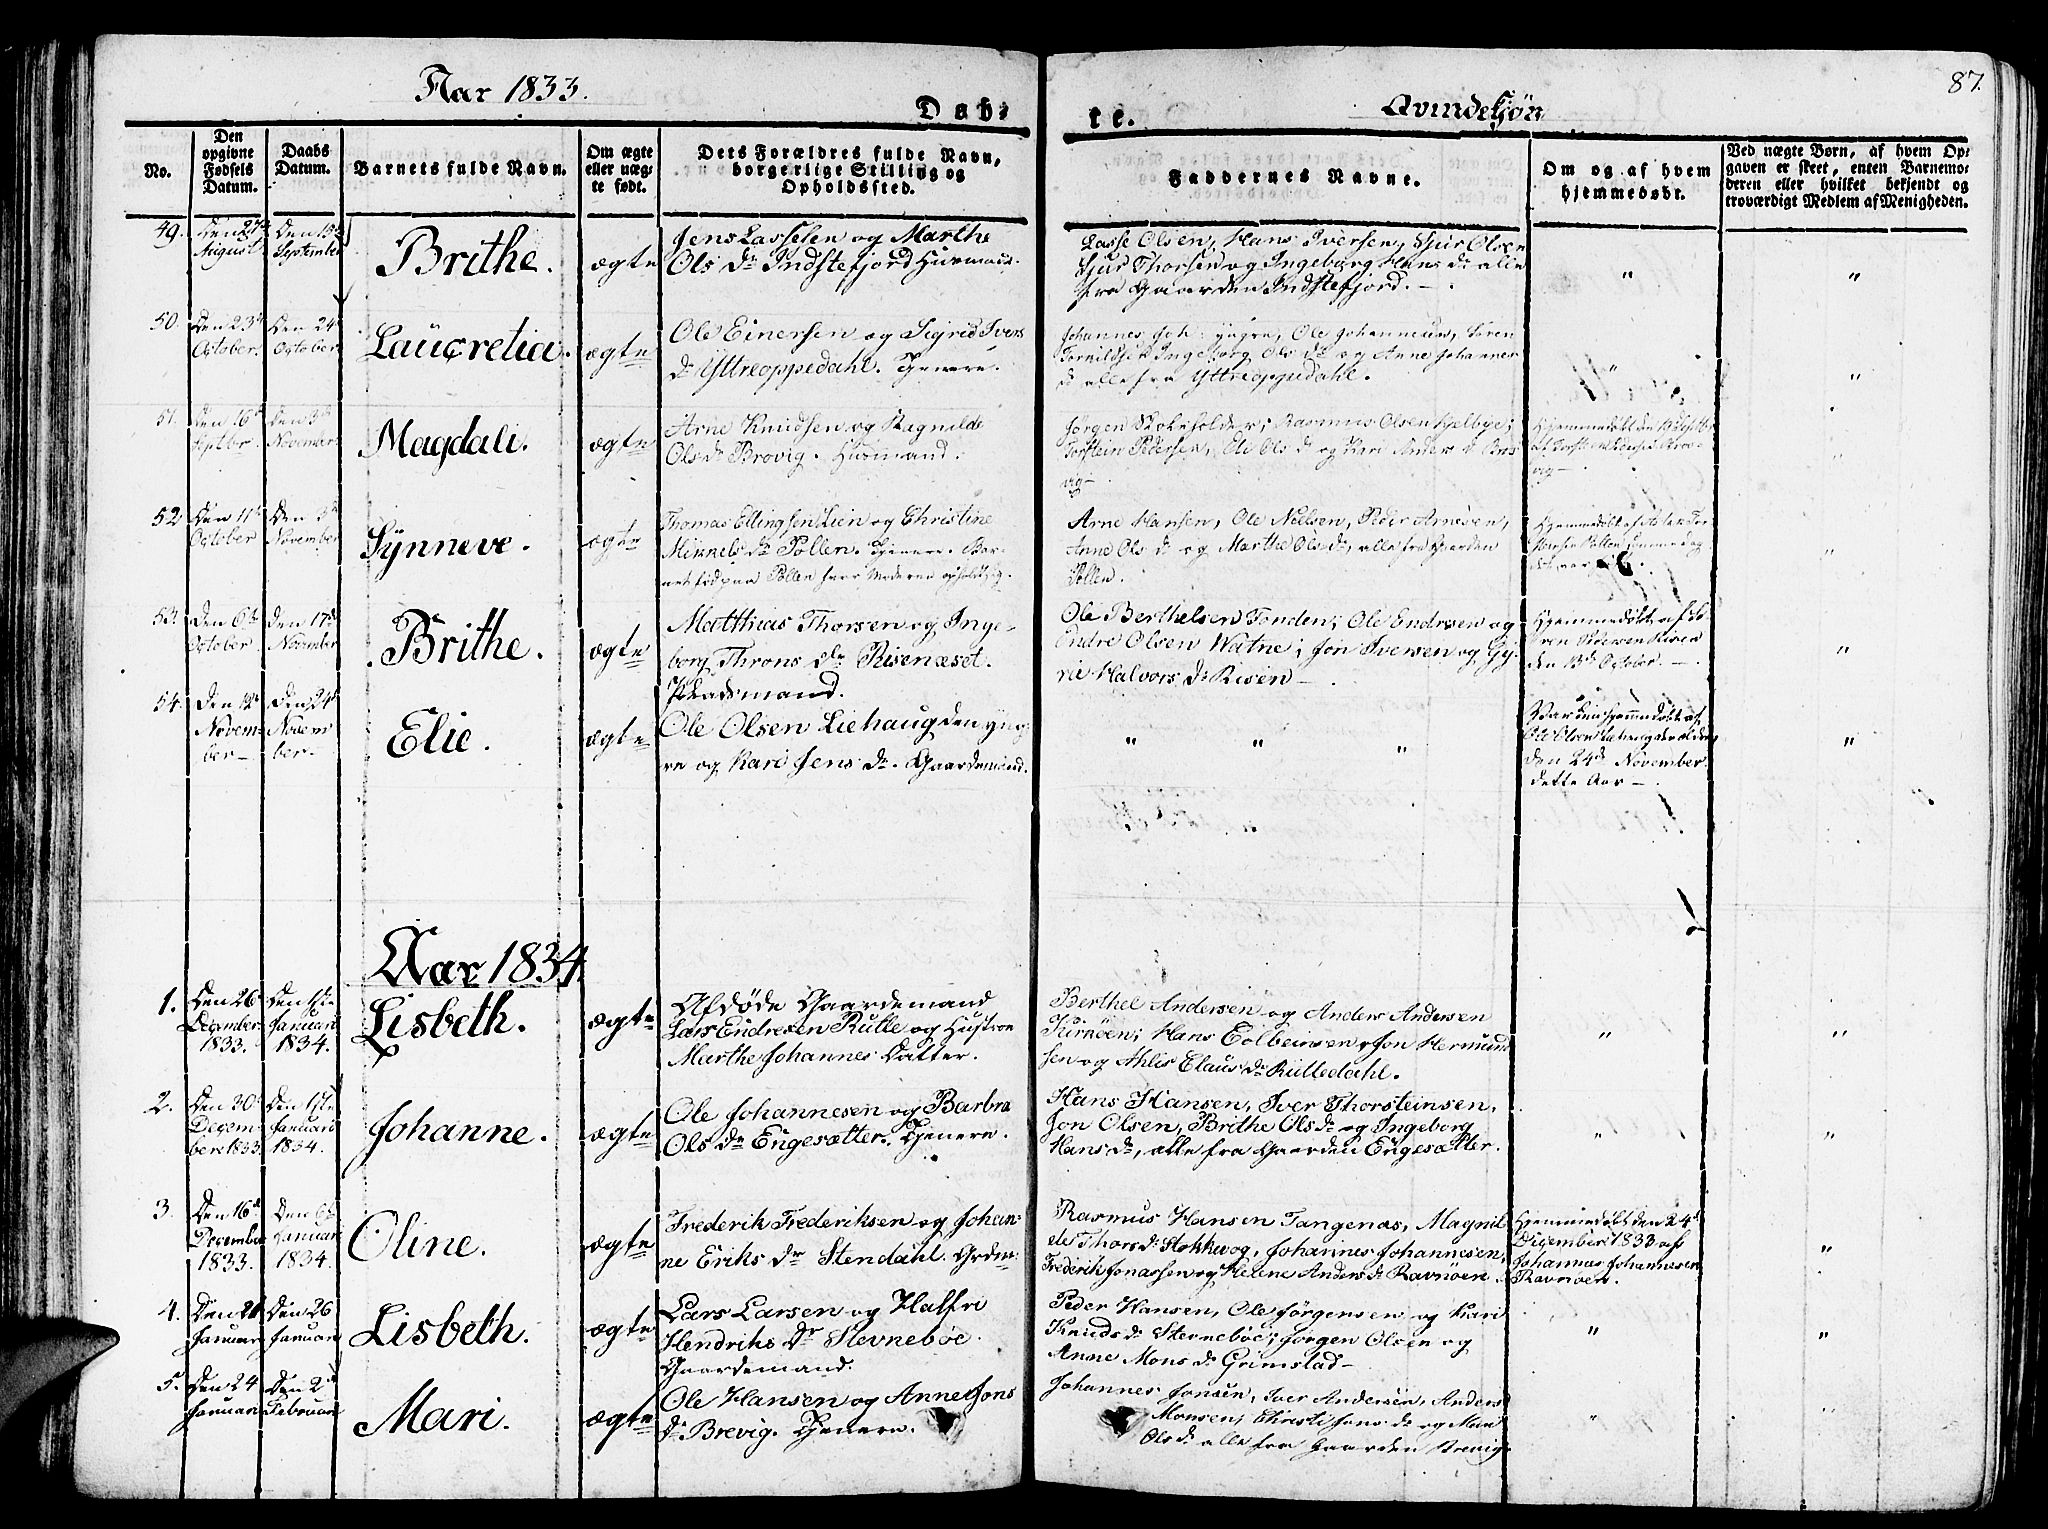 Aar 1833.
Døb-
te.
Qvindekjøn
87.
No.
Den opgivne Fødsels Datum.
Daabs Datum.
Barnets fulde Navn.
Om ægte eller uægte født.
Dets Forældres fulde Navn, borgerlige Stilling og Opholdssted.
Faddernes Navne.
Om og af hvem hjemmedøbt.
Ved uægte Børn, af hvem Opgaven er skeet, enten Barnemoderen eller hvilket bekjendt og troværdigt Medlem af Menigheden.
49.
August
September
Brithe.
ægte
Jens Lassesen og Marthe
Ols Dr Indstefjord Huusmand.
Lasse Olsen, Hans Iversen, Sjur Olsen
Sjur Thorsen og Ingeborg Hans Dr alle
fra Gaarden Indstefjord. —
50.
Den 23de
October.
Den 24de
October
Laucretia.
ægte
Ole Einersen og Sigrid Ivers
Dr Yttreoppedahl. Tjenere.
Dr alle fra Yttreoppedahl.
51.
Den 16de
Septber.
Den 3de
November
Magdali.
ægte
Arne Knudsen og Ragnilde
Ols Dr Brovig. Huusmand.
Torstein Pedersen, Eli Ols Dr og Kari Anders Dr Bro
vig
52
Den 11te
October
Den
November
Synneve.
ægte
Thomas Ellingsen Lien og Christine
Mikkels Dr Pollen. Tjenere. Bar-
net fød paa Pollen hvor Moderen opholdt sig.
Arne Hansen, Ole Nielsen, Peder Arnesen,
Anne Ols Dr og Marthe Ols Dr, alle fra Gaarden
Pollen.
53.
Den 6te
October
Den 17de
November
Brithe.
ægte
Matthias Thorsen og Inge-
borg Throns Dr Risenæset.
Pladsmand.
Ole Berthelsen Tonden; Ole Endresen og
Endre Olsen Watne; Jon Iversen og Gy-
rie Halvors Dr Risen —
Hjemmedøbt af Sø-
ren Pedersen Risen
den 13de October. —
54.
Den
Novem-
ber —
Den 24de
Novem
ber —
Elie.
ægte
Ole Olsen Liehaug den yng-
re og Kari Jens Dr. Gaardemand.
Var den hjemmedøbt af
Ole Olsen Liehaug den ældre
den 24de November
dette Aar —
Aar 1834
1.
Den 26de
December
1833.
Den 1ste
Januari
1834.
Lisbeth.
ægte
Afdøde Gaardemand
Lars Endresen Rutle og Hustroe
Marthe Johannes Datter.
Berthel Andersen og Anders Andersen
Hans Eolbeinsen, Jon Hermund
sen og Ahlis Claus Dr Rutledahl.
2.
Den 30te
Decem-
ber 1833.
Den 1ste
Januari
1834.
Johanne.
ægte
Ole Johannesen og Barbra
Ols Dr Engesætter. Tjenere.
Hans Hansen, Iver Thorsteinsen,
Jon Olsen, Brithe Ols Dr og Ingeborg
Hans Dr, alle fra Gaarden Engesætter.
3.
Den 16de
December
1833.
Den 6te
Januari
1834.
Oline.
ægte
Frederik Frederiksen og Johan-
ne Eriks Dr Stendahl. Grdm:
Rasmus Hansen Tangenæs, Magnil
de Thors Dr Stokkevog, Johannes Johannesen,
Frederik Jonassen og Helene Anders Dr Ravnøen
Hjemmedøbt den 24de
December 1833 af
Johannes Johannesen
Ravnøen.
4.
Den 21
Januari
Den 26
Januari
Lisbeth.
ægte
Lars Larsen og Halfri
Hendriks Dr Stevnebøe.
Gaardemand.
Peder Hansen, Ole Jørgensen og Kari
Knuds Dr Stevnebøe; Jørgen Olsen og
Anne Mons Dr Grimstad —
5.
Den 24
Januari
Den 2den
Februari
Mari.
ægte
Ole Hansen og Anne Jons
Dr Brevig. Tjenere.
Johannes Jonsen, Iver Andersen, Anders
Monsen, Christi Jons Dr og Mari
Ols Dr alle fra Gaarden Brevig.